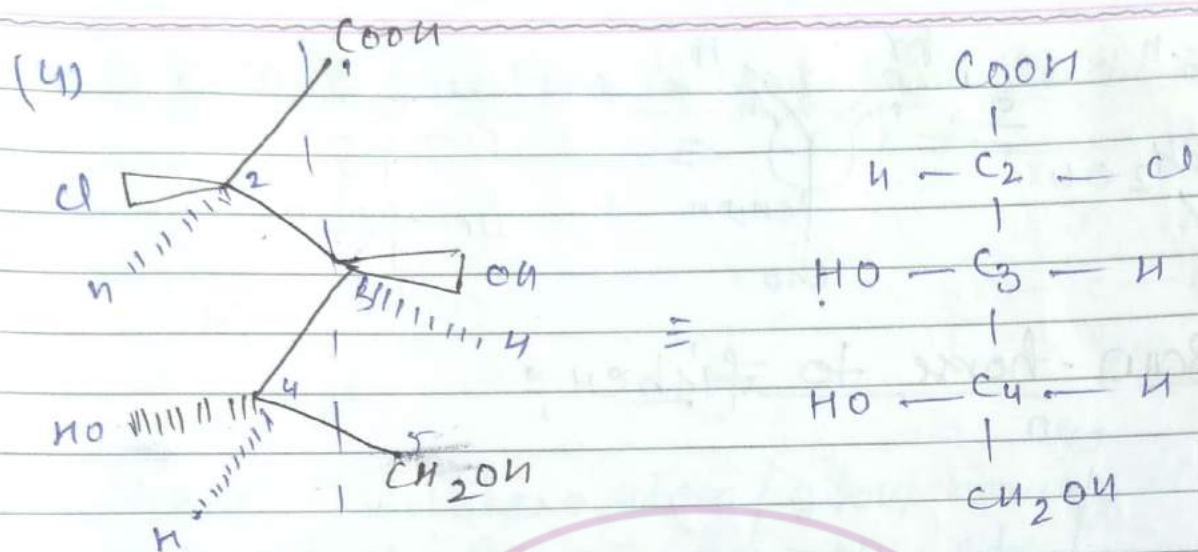 (4)
COOH
1
Cl
2
H
3
OH
H
HO
4
5
CH2OH
H
≡
COOH
H - C2 - Cl
HO - C3 - H
HO - C4 - H
CH2OH